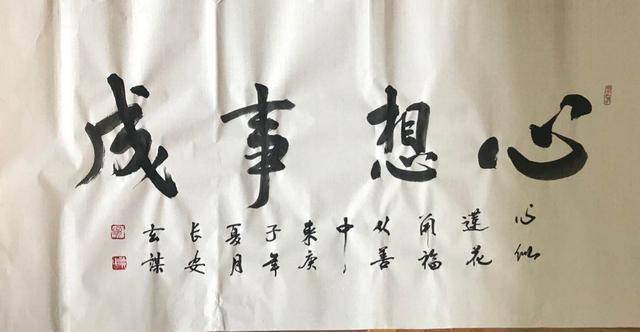 心想事成
心似
莲花
开福
从善
中，
来庚
子年
夏月
长安
玄谋